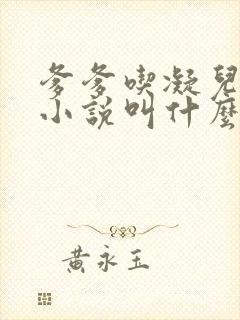 爹爹喫凝兒
小說叫什麽
黃永玉